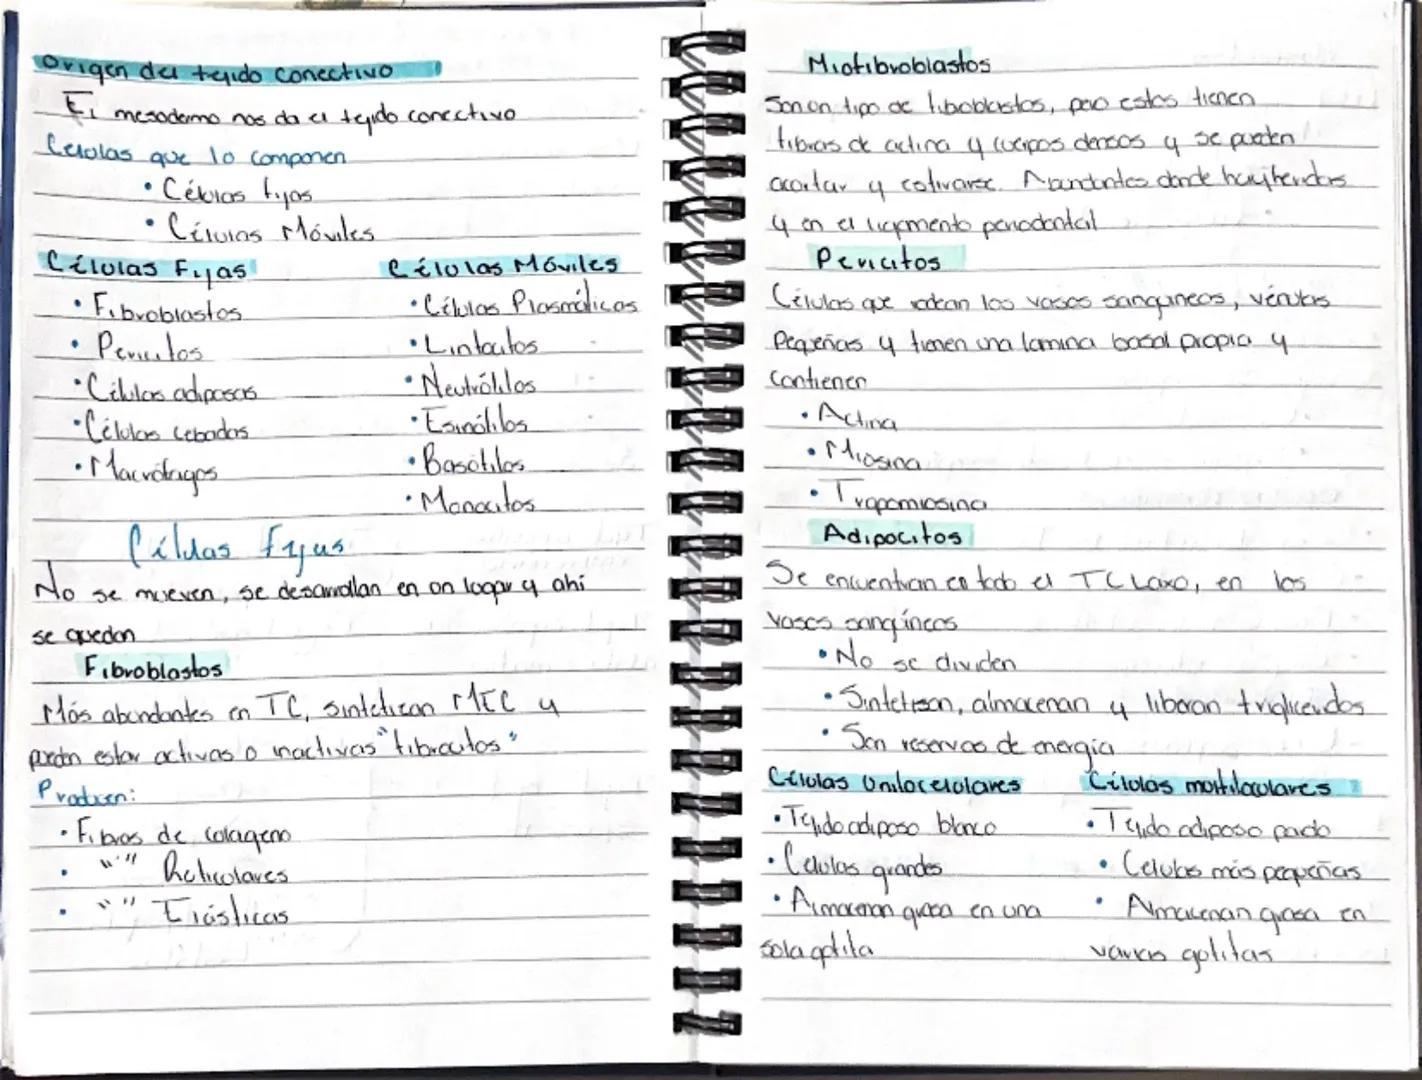 Origen del tejido conectivo
El mesodermo nos da el tejido conectivo
Celulas que lo componen
• Células fijas
• Células Móviles
Células Fijas
• Fibroblastos
• Pericitos
• Células adiposas
• Células cebadas
• Macrófagos
Células Móviles
• Células Plasmáticas
• Linfocitos
• Neutrófilos
• Esinófilos
• Basófilos
• Monocitos
Células fijas
No se mueven, se desarrollan en un lugar y ahi
se quedan
Fibroblastos
Más abundantes en TC, sintetizan MEC y
pueden estar activas o inactivas "fibrocitos"
Producen:
• Fibras de colageno
• " " Reticulares
• " " Elásticas
Miofibroblastos
Son un tipo de fibroblastos, pero estos tienen
fibras de actina y cuerpos densos y se pueden
acortar y Abundantes donde hay heridas
y en el ligamento periodontal
Pericitos
Células que rodean los vasos sanguineos, vénulas
Pequeñas y tienen una lamina basal propia y
Contienen
• Actina
• Miosina
• Tropomiosina
Adipocitos
Se encuentran en todo el TC Laxo, en los
vasos sangíneos
• No se dividen
• Sintetisan, almacenan y liberan trigliceridos
• Son reservas de energia
Células Unilocelolares
• Tejido adiposo blanco
• Celulas grandes
• Almacenan grasa en una
sola gotita
Células moltiloculares
• Tejido adiposo pardo
• Celulas más pequeñas
• Almacenan grasa en
varias gotitas